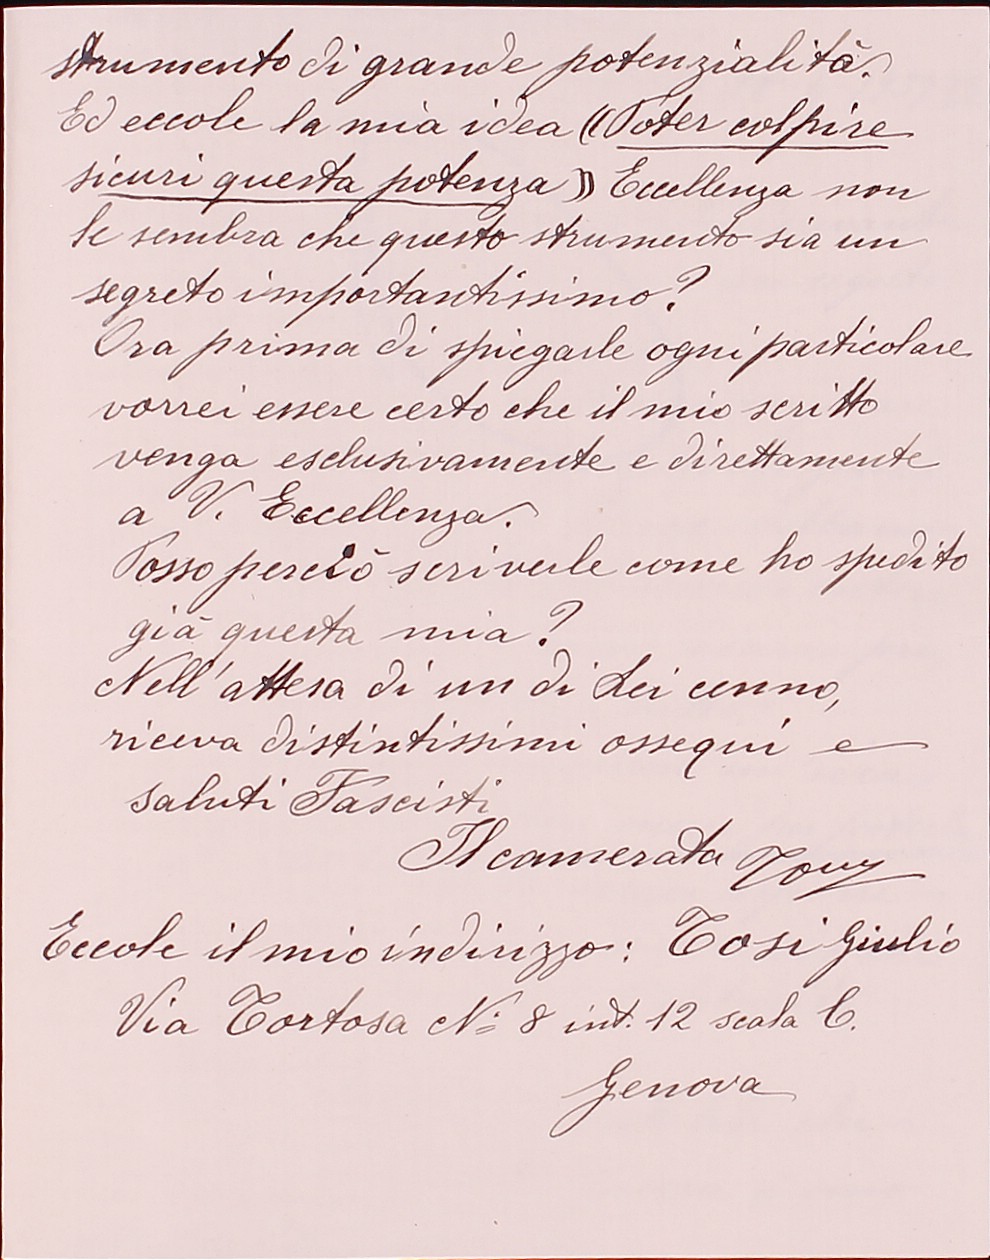 strumento di grande potenzialità.
Ed eccole la mia idea ((Poter colpire
sicuri questa potenza)) Eccellenza non
le sembra che questo strumento sia un
segreto importantissimo?
Ora prima di spiegarle ogni particolare
vorrei essere certo che il mio scritto
venga esclusivamente e direttamente
a V. Eccellenza.
Posso perciò scriverle come ho spedito
già questa mia?
Nell'attesa di un di Lei cenno,
riceva distintissimi ossequi e
saluti Fascisti
Il camerata
Eccole il mio indirizzo: Tosi Giulio
Via Tortosa N: 8 int. 12 scala C.
Genova